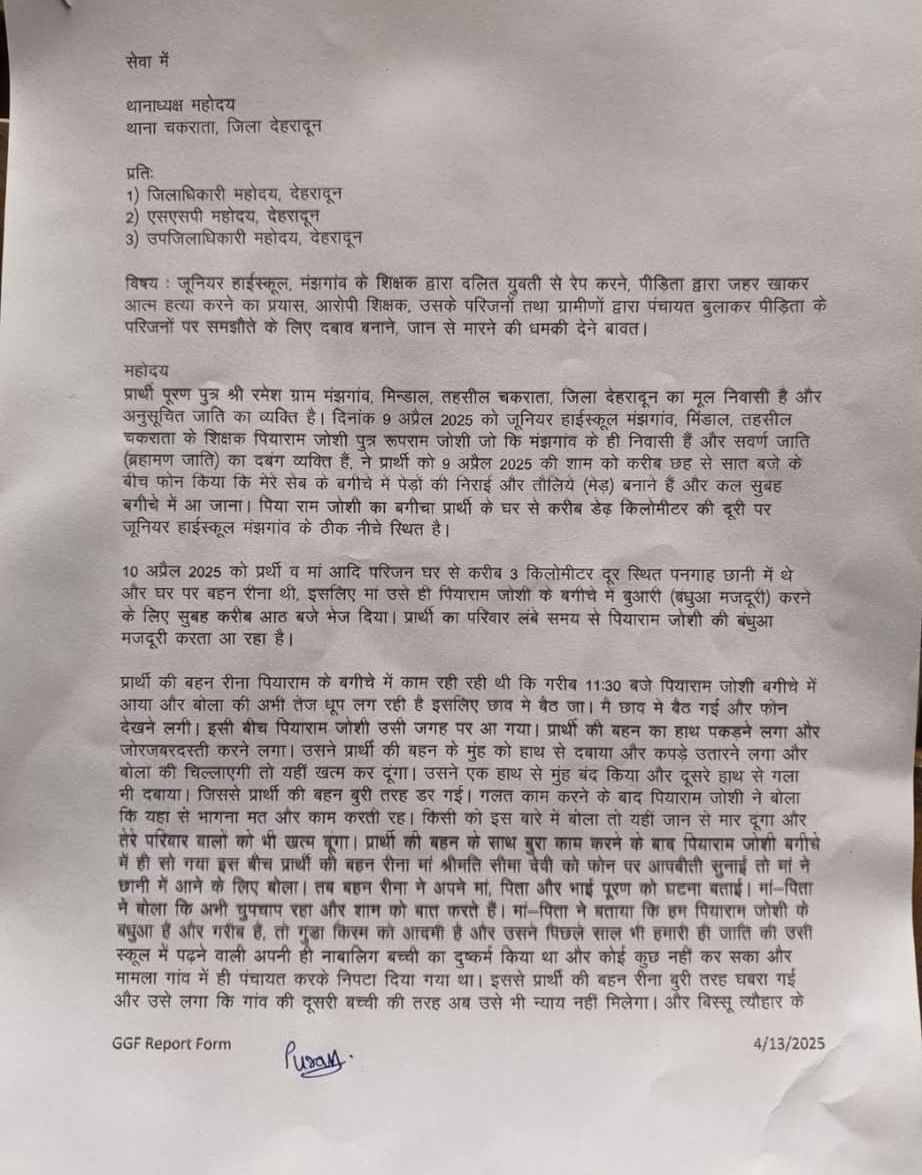 सेवा में
थानाध्यक्ष महोदय
थाना चकराता, जिला देहरादून
प्रतिः
1) जिलाधिकारी महोदय, देहरादून
2) एसएसपी महोदय, देहरादून
3) उपजिलाधिकारी महोदय, देहरादून
विषय : जूनियर हाईस्कूल, मंझगांव के शिक्षक द्वारा दलित युवती से रेप करने, पीड़िता द्वारा जहर खाकर
आत्म हत्या करने का प्रयास, आरोपी शिक्षक, उसके परिजनों तथा ग्रामीणों द्वारा पंचायत बुलाकर पीड़िता के
परिजनों पर समझौते के लिए दबाव बनाने, जान से मारने की धमकी देने बावत।
महोदय
प्रार्थी पूरण पुत्र श्री रमेश ग्राम मंझगांव, मिन्डाल, तहसील चकराता, जिला देहरादून का मूल निवासी है और
अनुसूचित जाति का व्यक्ति है। दिनांक 9 अप्रैल 2025 को जूनियर हाईस्कूल मंझगांव, मिंडाल, तहसील
चकराता के शिक्षक पियाराम जोशी पुत्र रूपराम जोशी जो कि मंझगांव के ही निवासी हैं और सवर्ण जाति
(ब्रहामण जाति) का दबंग व्यक्ति हैं, ने प्रार्थी को 9 अप्रैल 2025 की शाम को करीब छह से सात बजे के
बीच फोन किया कि मेरे सेब के बगीचे में पेड़ों की निराई और तौलिये (मेड़) बनाने हैं और कल सुबह
बगीचे में आ जाना। पिया राम जोशी का बगीचा प्रार्थी के घर से करीब डेढ़ किलोमीटर की दूरी पर
जूनियर हाईस्कूल मंझगांव के ठीक नीचे स्थित है।
10 अप्रैल 2025 को प्रर्थी व मां आदि परिजन घर से करीब 3 किलोमीटर दूर स्थित पनगाह छानी में थे
और घर पर बहन रीना थी, इसलिए मां उसे ही पियाराम जोशी के बगीचे में बुआरी (बंधुआ मजदूरी) करने
के लिए सुबह करीब आठ बजे भेज दिया। प्रार्थी का परिवार लंबे समय से पियाराम जोशी की बंधुआ
मजदूरी करता आ रहा है।
प्रार्थी की बहन रीना पियाराम के बगीचे में काम रही रही थी कि गरीब 11:30 बजे पियाराम जोशी बगीचे में
आया और बोला की अभी तेज धूप लग रही है इसलिए छाव मे बैठ जा। मै छाव मे बैठ गई और फोन
देखने लगी। इसी बीच पियाराम जोशी उसी जगह पर आ गया। प्रार्थी की बहन का हाथ पकड़ने लगा और
जोरजबरदस्ती करने लगा। उसने प्रार्थी की बहन के मुंह को हाथ से दबाया और कपड़े उतारने लगा और
बोला की चिल्लाएगी तो यहीं खत्म कर दूंगा। उसने एक हाथ से मुंह बंद किया और दूसरे हाथ से गला
भी दबाया। जिससे प्रार्थी की बहन बुरी तरह डर गई। गलत काम करने के बाद पियाराम जोशी ने बोला
कि यहा से भागना मत और काम करती रह। किसी को इस बारे में बोला तो यहीं जान से मार दूंगा और
तेरे परिवार वालों को भी खत्म दूंगा। प्रार्थी की बहन के साथ बुरा काम करने के बाब पियाराम जोशी बगीचे
में ही सो गया इस बीच प्रार्थी की बहन रीना मां श्रीमति सीमा देवी को फोन पर आपबीती सुनाई तो मां ने
छानी में आने के लिए बोला। तब बहन रीना ने अपने मां, पिता और भाई पूरण को घटना बताई। मां–पिता
ने बोला कि अभी चुपचाप रहा और शाम को बात करते हैं। मां–पिता ने बताया कि हम पियाराम जोशी के
बधुआ हैं और गरीब हैं, तो गुंडा किस्म को आदमी है और उसने पिछले साल भी हमारी ही जाति की उसी
स्कूल में पढ़ने वाली अपनी ही नाबालिग बच्ची का दुष्कर्म किया था और कोई कुछ नहीं कर सका और
मामला गांव में ही पंचायत करके निपटा दिया गया था। इससे प्रार्थी की बहन रीना बुरी तरह घबरा गई
और उसे लगा कि गांव की दूसरी बच्ची की तरह अब उसे भी न्याय नहीं मिलेगा। और बिस्सू त्यौहार के
GGF Report Form
4/13/2025
Puran